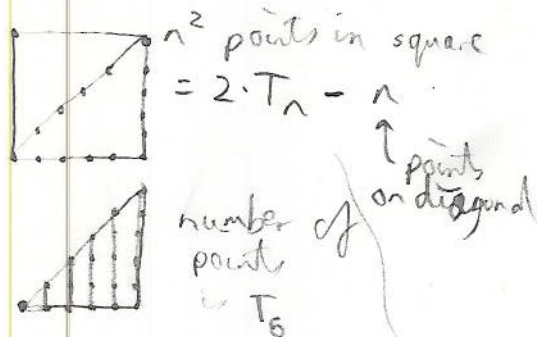 n² points in square
= 2·Tₙ - n
↑
points
on diagonal
number of
points
is T₆